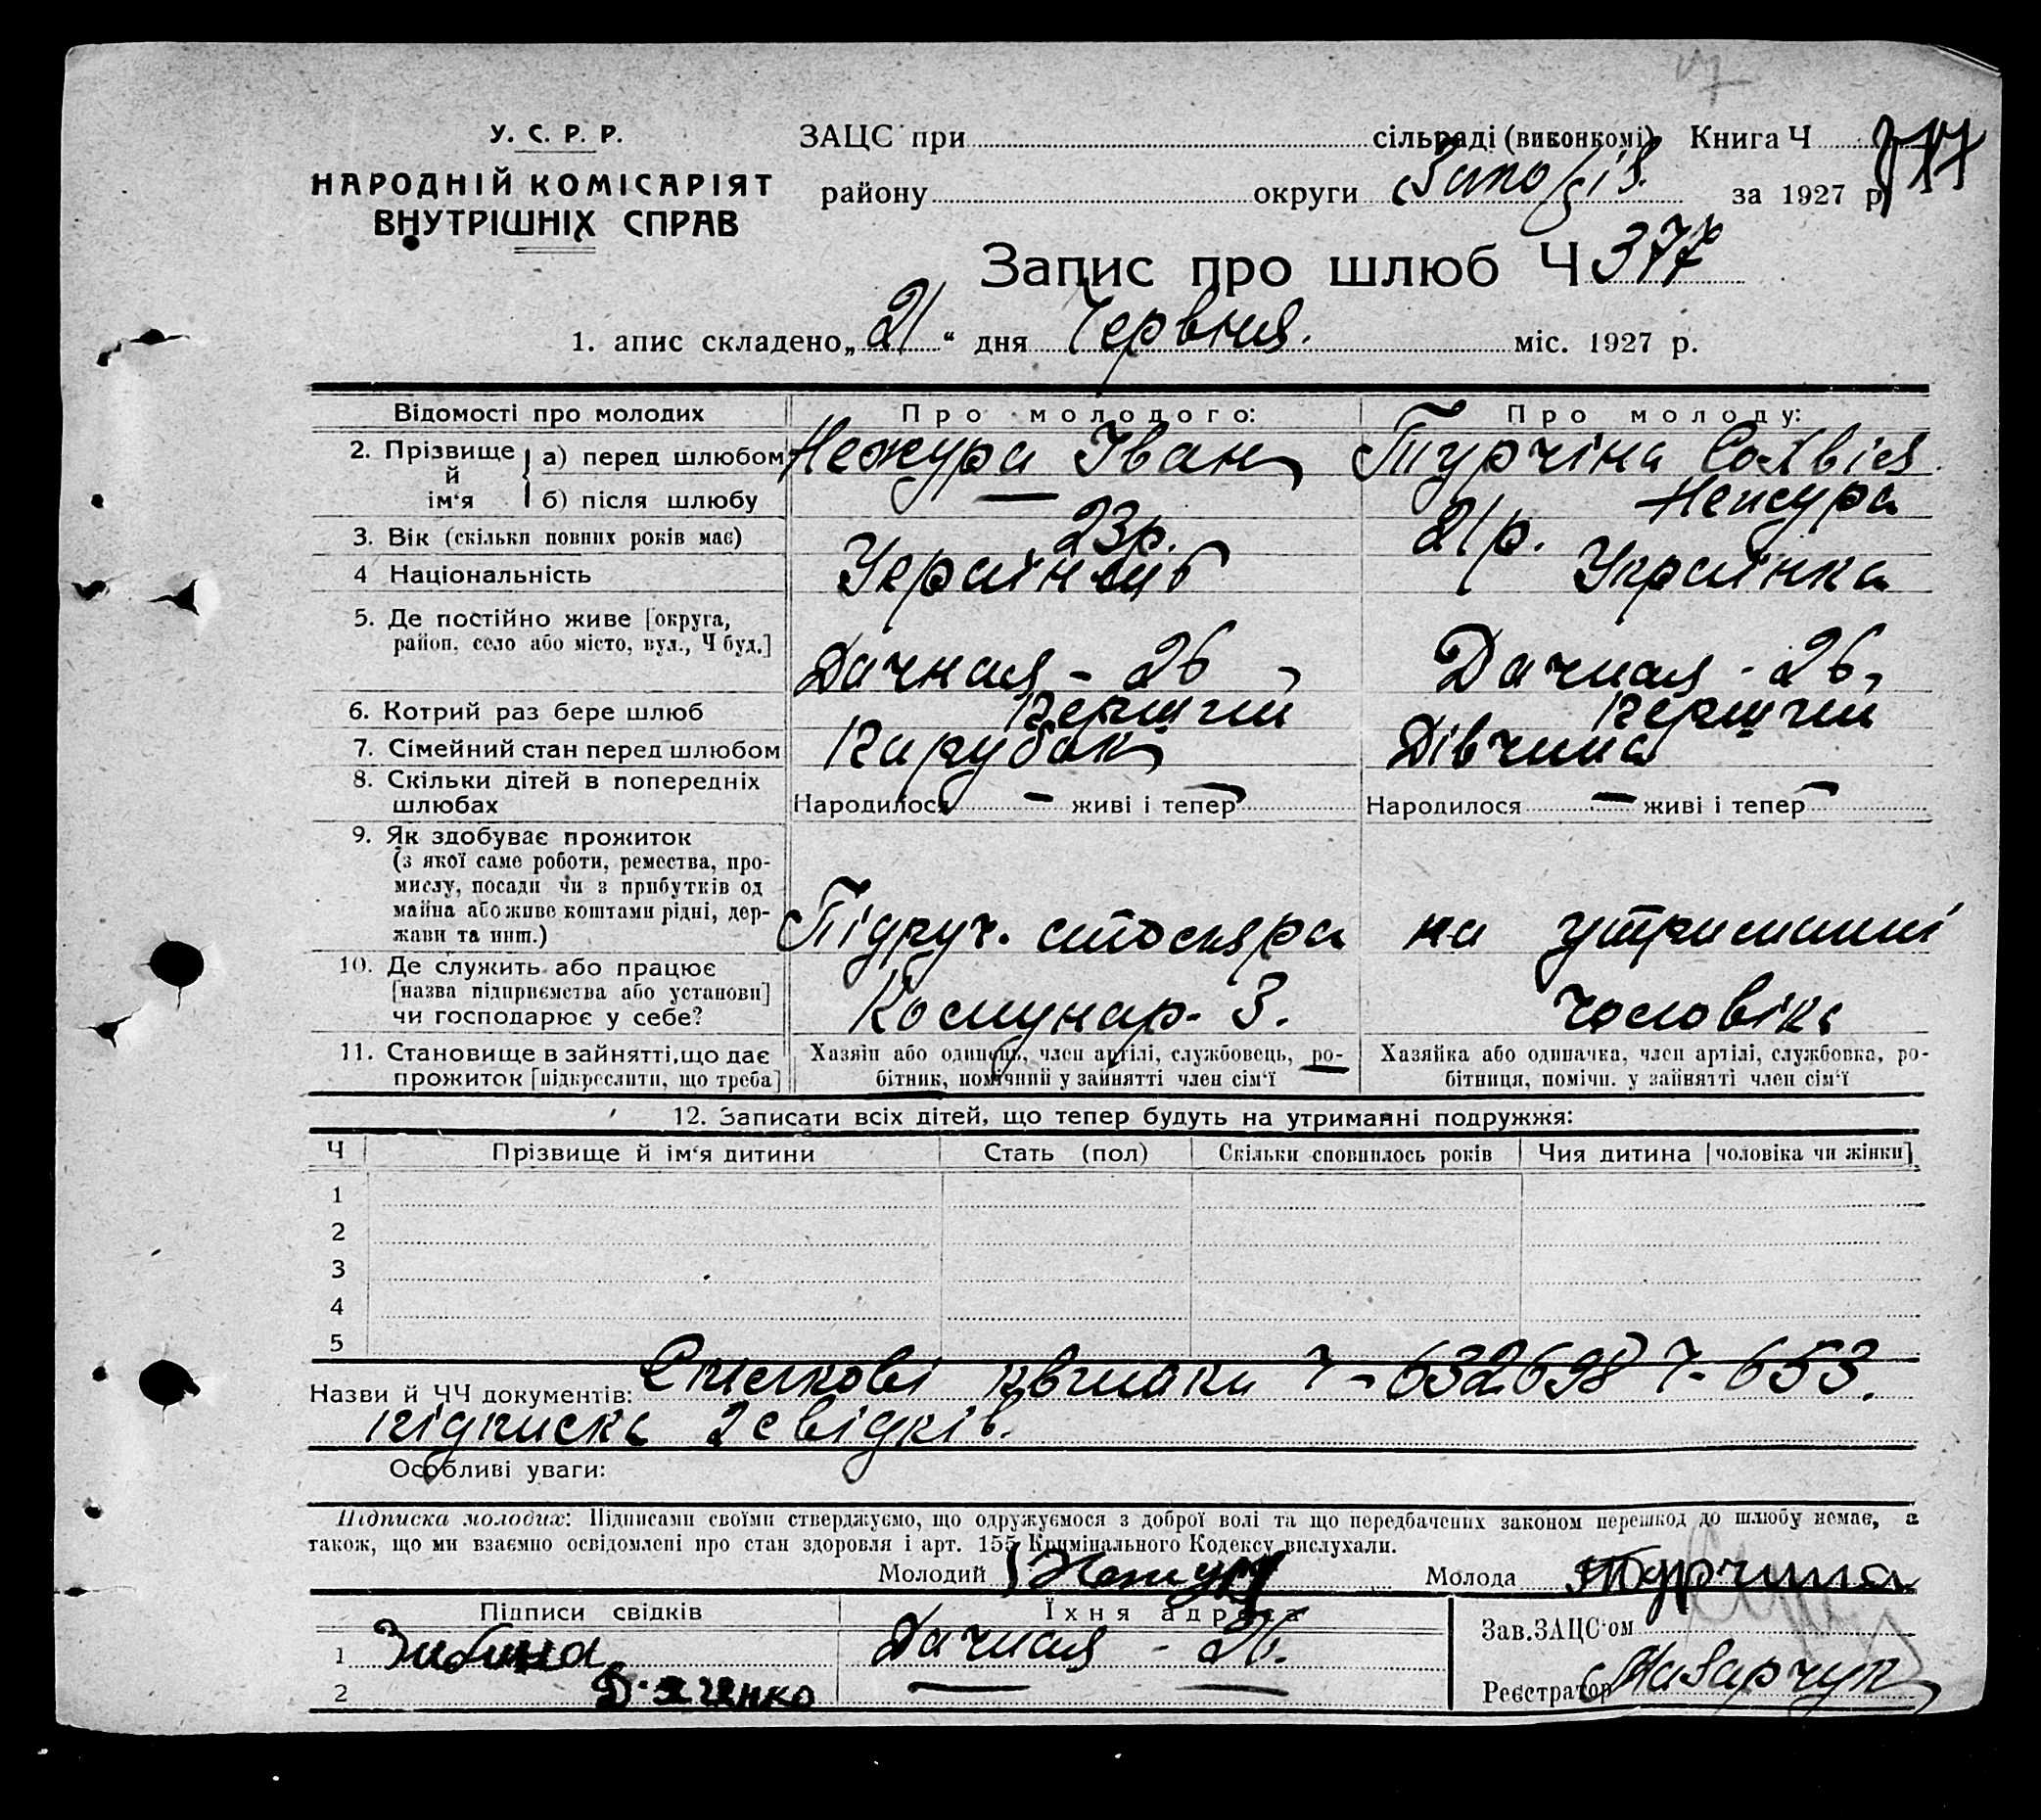 У. С. Р. Р.
НАРОДНІЙ КОМІСАРІЯТ
ВНУТРІШНІХ СПРАВ
ЗАЦС при сільраді (виконкомі) Книга Ч
району округи за 1927 р.
Запис про шлюб Ч 377
1. апис складено „21“ дня Червня міс. 1927 р.
Відомості про молодих Про молодого: Про молоду:
2. Прізвище й ім‘я а) перед шлюбом Нежура Іван Турчіна Софвія
б) після шлюбу — Нежура
3. Вік (скільки повних років має) 23р. 21р.
4 Національність Українець Українка
5. Де постійно живе [округа,
район, село або місто, вул., Ч буд.] Дачная - 26 Дачная - 26
6. Котрий раз бере шлюб Перший Перший
7. Сімейний стан перед шлюбом Парубок Дівчина
8. Скільки дітей в попередніх
шлюбах Народилося — живі і тепер — Народилося — живі і тепер —
9. Як здобуває прожиток
(з якої саме роботи, ремества, про-
мислу, посади чи з прибутків од
майна або живе коштами рідні, дер-
жави та инш.) Підруч. столяра на утриманні
10. Де служить або працює
[назва підприємства або установи]
чи господарює у себе? Комунар. З. чоловіка
11. Становище в зайнятті, що дає
прожиток [підкреслити, що треба]
Хазяїн або одинець, член артілі, службовець, ро-
бітник, помічний у зайнятті член сім‘ї
Хазяйка або одиначка, член артілі, службовка, ро-
бітниця, помічн. у зайнятті член сім‘ї
12. Записати всіх дітей, що тепер будуть на утриманні подружжя:
Ч Прізвище й ім‘я дитини Стать (пол) Скільки сповнилось років Чия дитина [чоловіка чи жінки]
1
2
3
4
5
Назви й ЧЧ документів: Спілкові квитки Ч-632698 Ч-653.
підписка 2 свідків.
Особливі уваги:
Підписка молодих: Підписами своїми стверджуємо, що одружуємося з доброї волі та що передбачених законом перешкод до шлюбу немає, а
також, що ми взаємно освідомлені про стан здоровля і арт. 155 Кримінального Кодексу вислухали.
Молодий Нежура Молода Турчина
Підписи свідків Їхня адреса Зав. ЗАЦС‘ом
1 Дачная - 26.
2 — — Реєстратор